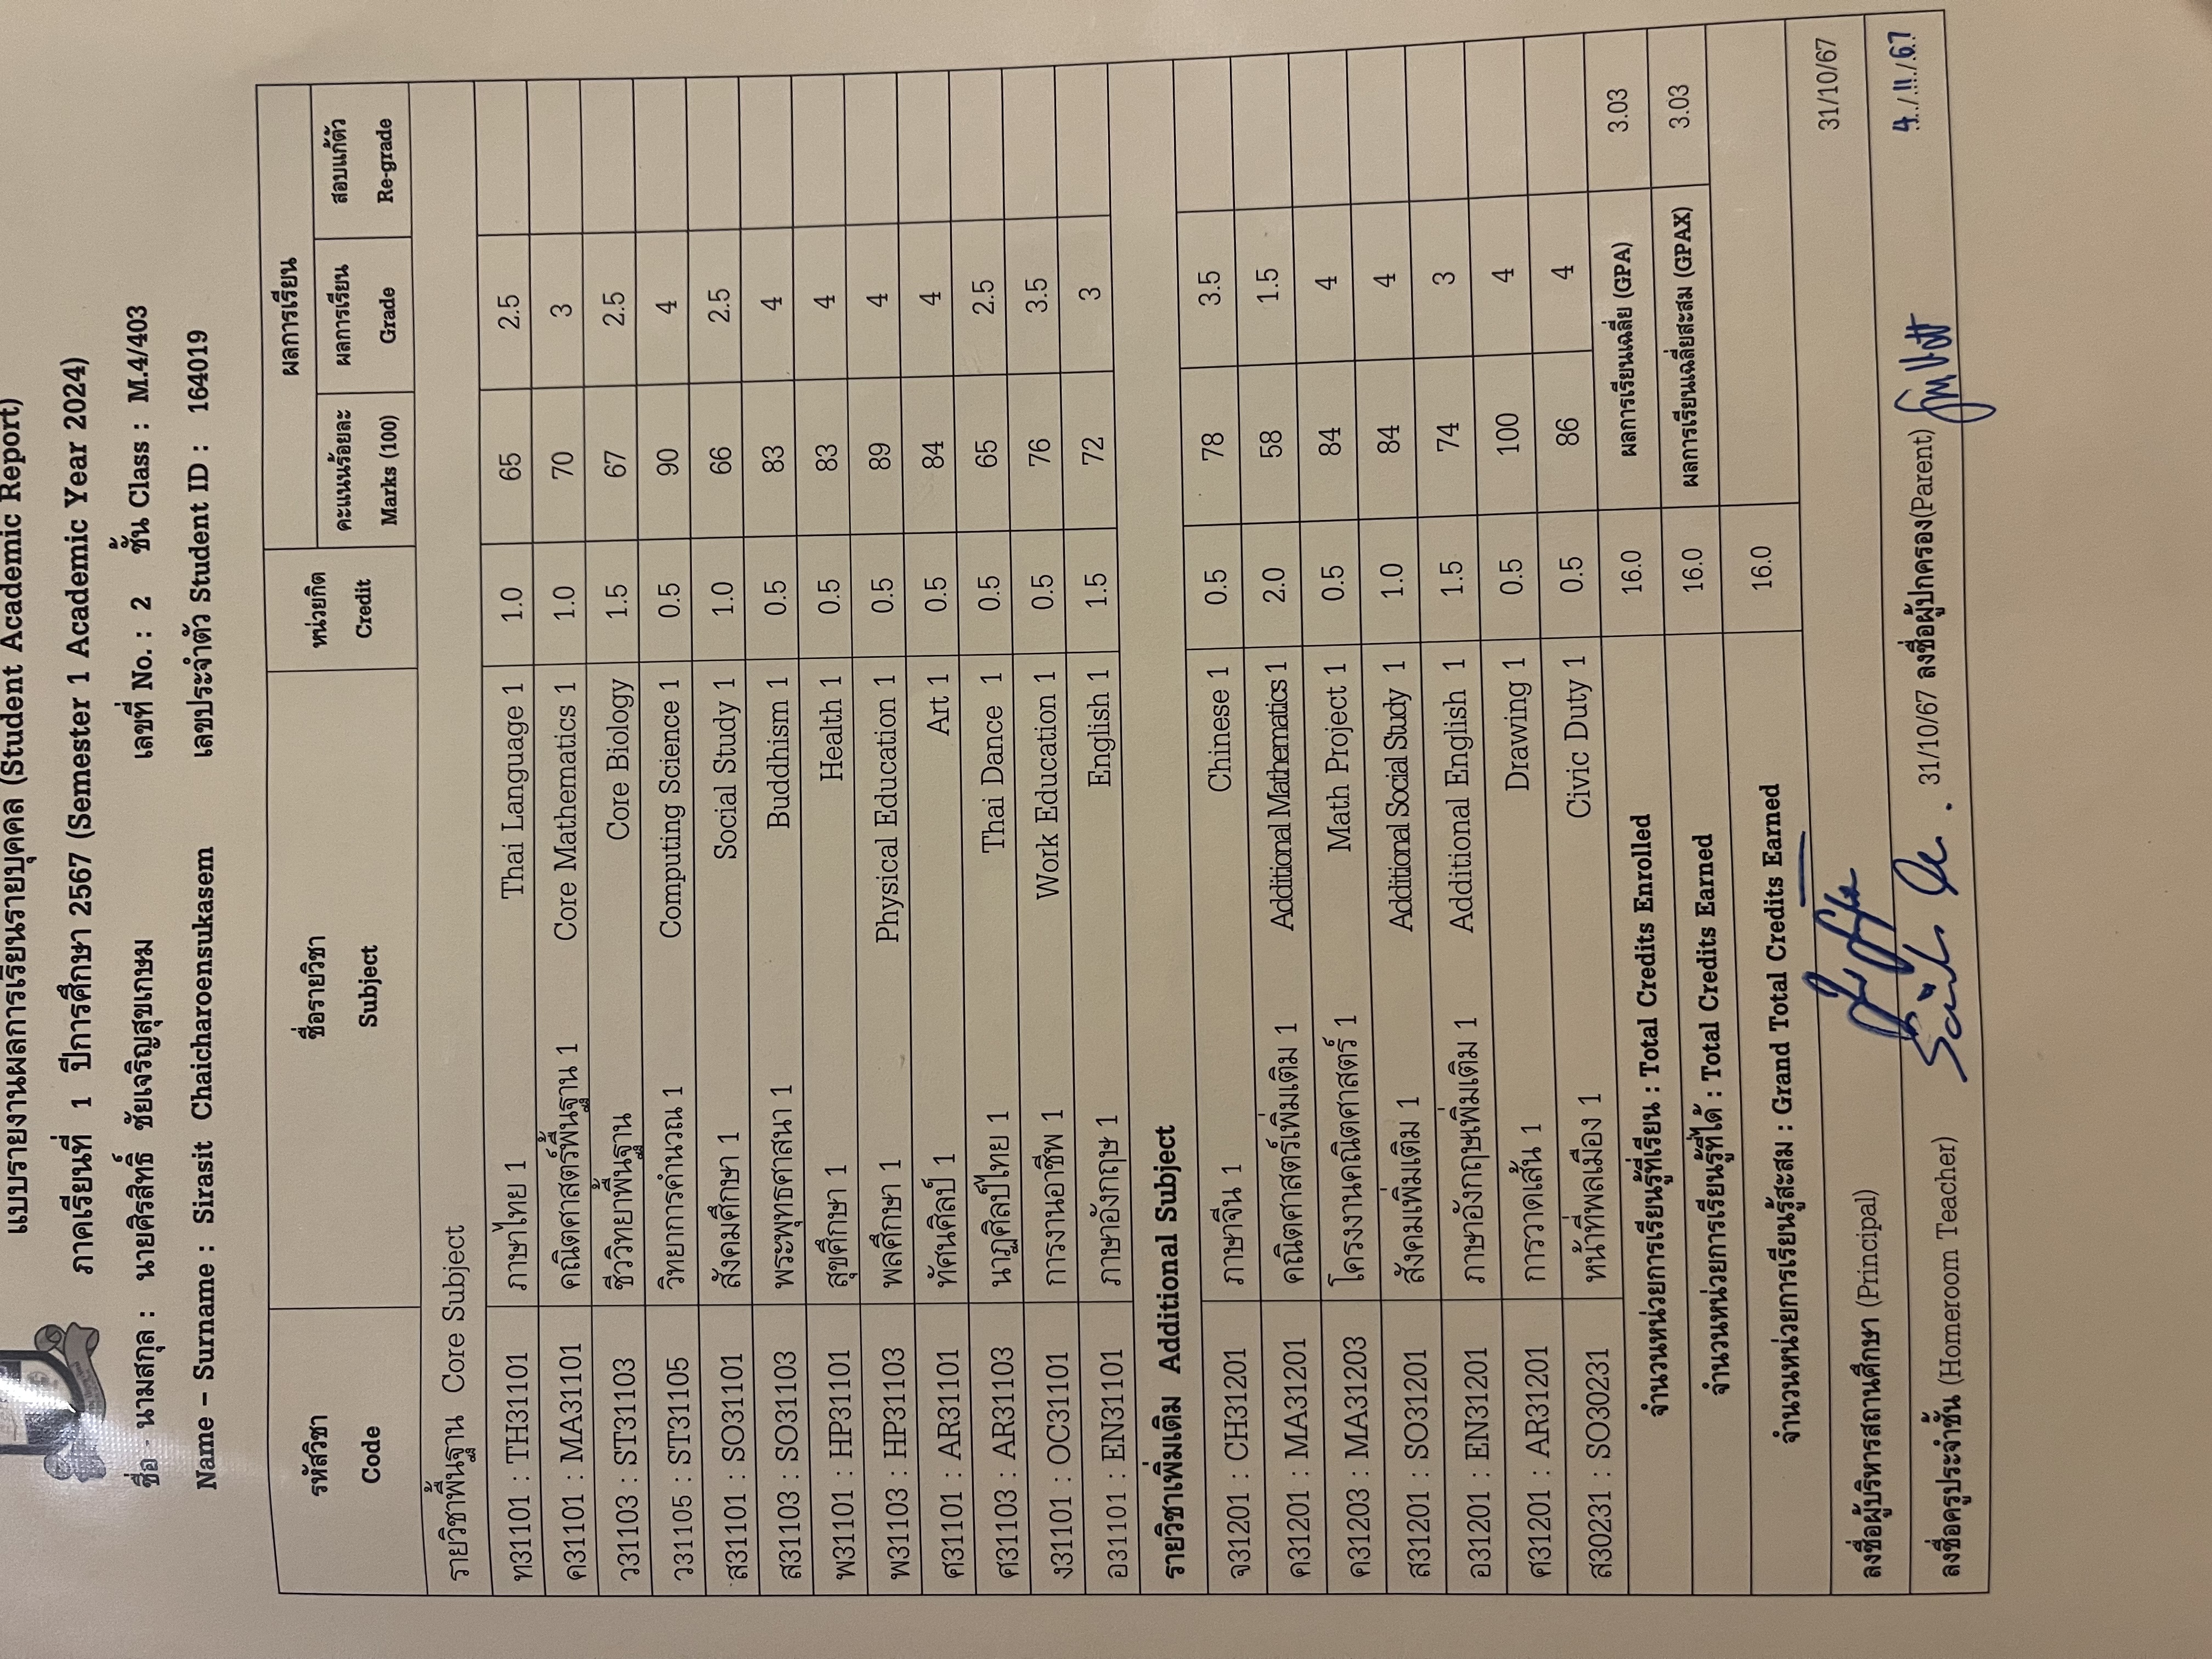 แบบรายงานผลการเรียนรายบุคคล (Student Academic Report)
ภาคเรียนที่ 1 ปีการศึกษา 2567 (Semester 1 Academic Year 2024)
ชื่อ - นามสกุล : นายศิรสิทธิ์ ชัยเจริญสุขเกษม เลขที่ No. : 2 ชั้น Class : M.4/403
Name – Surname : Sirasit Chaicharoensukasem เลขประจำตัว Student ID : 164019
รหัสวิชา ชื่อรายวิชา หน่วยกิต ผลการเรียน
คะแนนร้อยละ ผลการเรียน สอบแก้ตัว
Code Subject Credit Marks (100) Grade Re-grade
รายวิชาพื้นฐาน Core Subject
ท31101 : TH31101 ภาษาไทย 1 Thai Language 1 1.0 65 2.5
ค31101 : MA31101 คณิตศาสตร์พื้นฐาน 1 Core Mathematics 1 1.0 70 3
ว31103 : ST31103 ชีววิทยาพื้นฐาน Core Biology 1.5 67 2.5
ว31105 : ST31105 วิทยาการคำนวณ 1 Computing Science 1 0.5 90 4
ส31101 : SO31101 สังคมศึกษา 1 Social Study 1 1.0 66 2.5
ส31103 : SO31103 พระพุทธศาสนา 1 Buddhism 1 0.5 83 4
พ31101 : HP31101 สุขศึกษา 1 Health 1 0.5 83 4
พ31103 : HP31103 พลศึกษา 1 Physical Education 1 0.5 89 4
ศ31101 : AR31101 ทัศนศิลป์ 1 Art 1 0.5 84 4
ศ31103 : AR31103 นาฏศิลป์ไทย 1 Thai Dance 1 0.5 65 2.5
ง31101 : OC31101 การงานอาชีพ 1 Work Education 1 0.5 76 3.5
อ31101 : EN31101 ภาษาอังกฤษ 1 English 1 1.5 72 3
รายวิชาเพิ่มเติม Additional Subject
จ31201 : CH31201 ภาษาจีน 1 Chinese 1 0.5 78 3.5
ค31201 : MA31201 คณิตศาสตร์เพิ่มเติม 1 Additional Mathematics 1 2.0 58 1.5
ค31203 : MA31203 โครงงานคณิตศาสตร์ 1 Math Project 1 0.5 84 4
ส31201 : SO31201 สังคมเพิ่มเติม 1 Additional Social Study 1 1.0 84 4
อ31201 : EN31201 ภาษาอังกฤษเพิ่มเติม 1 Additional English 1 1.5 74 3
ศ31201 : AR31201 การวาดเส้น 1 Drawing 1 0.5 100 4
ส30231 : SO30231 หน้าที่พลเมือง 1 Civic Duty 1 0.5 86 4
จำนวนหน่วยการเรียนรู้ที่เรียน : Total Credits Enrolled 16.0 ผลการเรียนเฉลี่ย (GPA) 3.03
จำนวนหน่วยการเรียนรู้ที่ได้ : Total Credits Earned 16.0 ผลการเรียนเฉลี่ยสะสม (GPAX) 3.03
จำนวนหน่วยการเรียนรู้สะสม : Grand Total Credits Earned 16.0
ลงชื่อผู้บริหารสถานศึกษา (Principal) 31/10/67
ลงชื่อครูประจำชั้น (Homeroom Teacher) 31/10/67 ลงชื่อผู้ปกครอง(Parent) 4/11/67